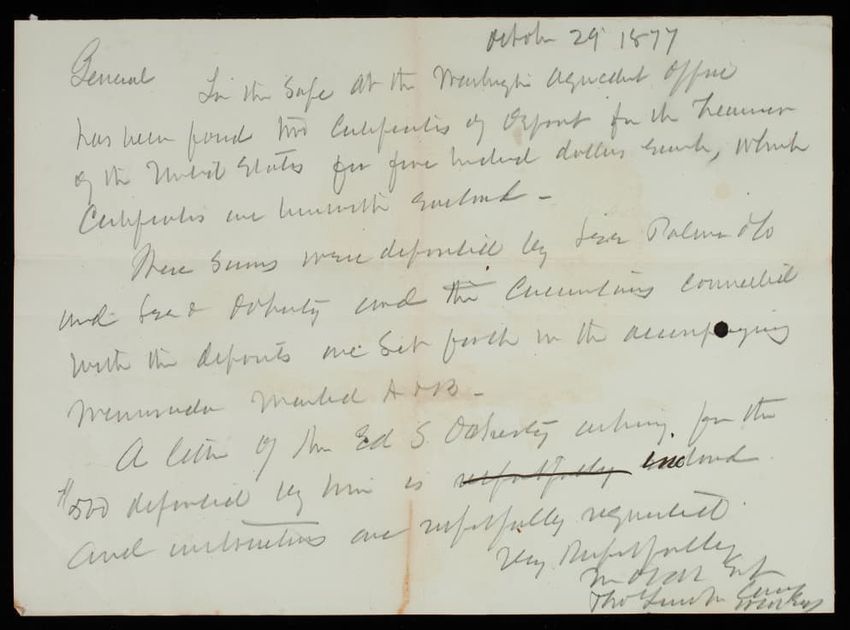 October 29 1877
General In the Safe at the Washington Aqueduct Office
has been found two Certificates of Deposit for the Treasurer
of the United States for five hundred dollars each, which
Certificates are herewith enclosed -
These sums were deposited by Geo
and Geo and the Circumstances connected
with the deposits are set forth in the accompanying
Memoranda marked A & B -
A letter of Mr Ed S. Doherty asking for the
$500 deposited by him is respectfully inclosed
and instructions are respectfully requested.
Very Respectfully